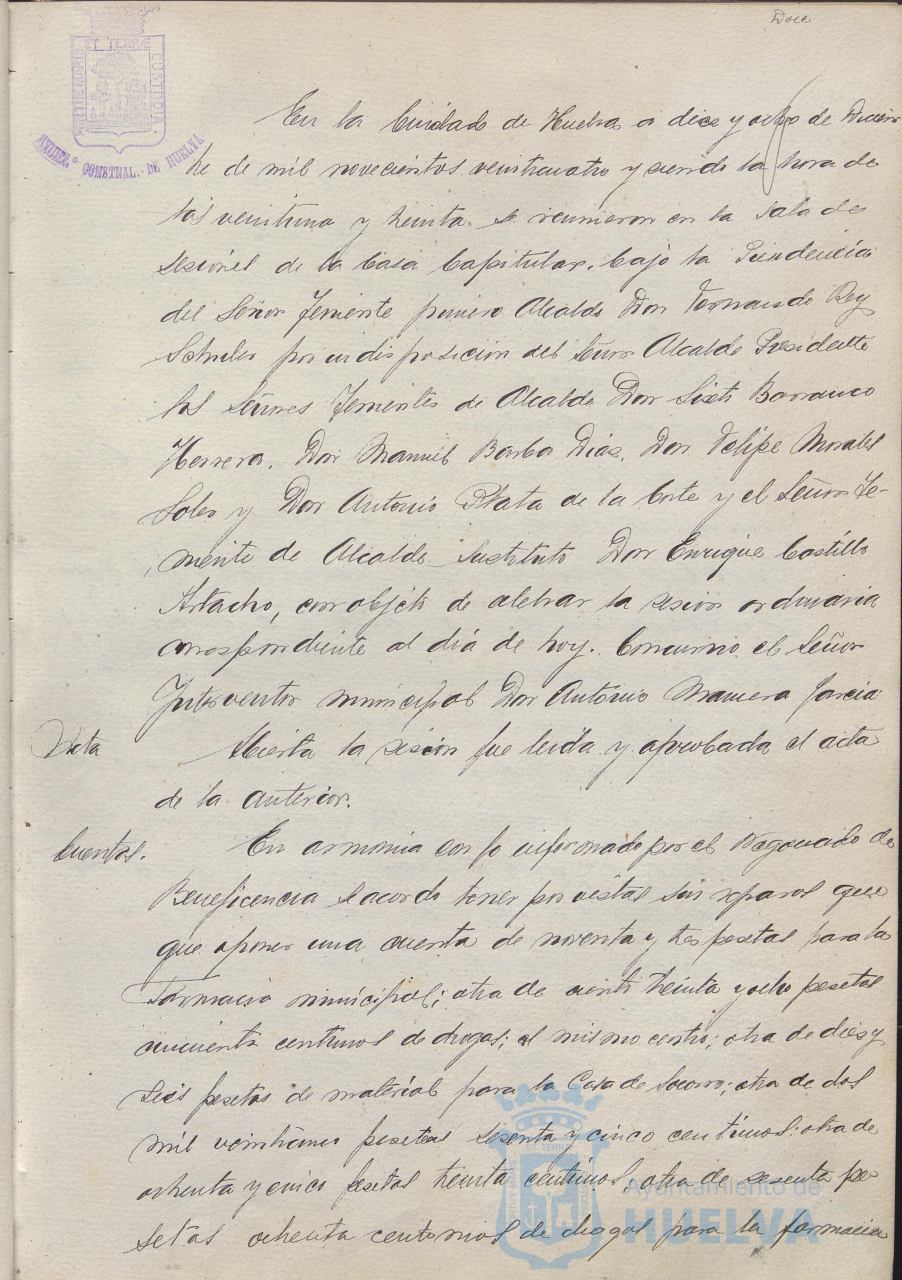 Doce
PORTUS MARIS ET TERRÆ CUSTODIA
AYUDEM.º CONSTNAL. DE HUELVA
En la Ciudad de Huelva a diez y ocho de Diciem
bre de mil novecientos veinticuatro y siendo la hora de
las veintiuna y treinta se reunieron en la Sala de
sesiones de la Casa Capitular, bajo la Presidencia
del Señor Teniente primero Alcalde Don Fernando Rey
por indisposición del Señor Alcalde Presidente
los Señores Tenientes de Alcalde Don Sixto Barranco
Herrera, Don Manuel Barba Diaz, Don Felipe Morales
y Don Antonio Plata de la Corte y el Señor Te-
niente de Alcalde Sustituto Don Enrique Castillo
Artacho, con objeto de celebrar la sesión ordinaria
correspondiente al día de hoy. Concurrió el Señor
Interventor municipal Don Antonio Garcia
Acta
Abierta la sesión fue leida y aprobada el acta
de la anterior.
Cuentas.
En armonia con lo informado por el Negociado de
Beneficencia se acordo tener por vistas sin reparos que
que oponer una cuenta de noventa y tres pesetas para la
Farmacia municipal; otra de ciento treinta y ocho pesetas
cincuenta centimos de drogas; al mismo centro; otra de diez y
seis pesetas de material para la Casa de Socorro; otra de dos
mil pesetas sesenta y cinco centimos: otra de
ochenta y cinco pesetas treinta centimos, otra de sesenta pe
setas ochenta centimos de drogas para la farmacia
Ayuntamiento de
HUELVA